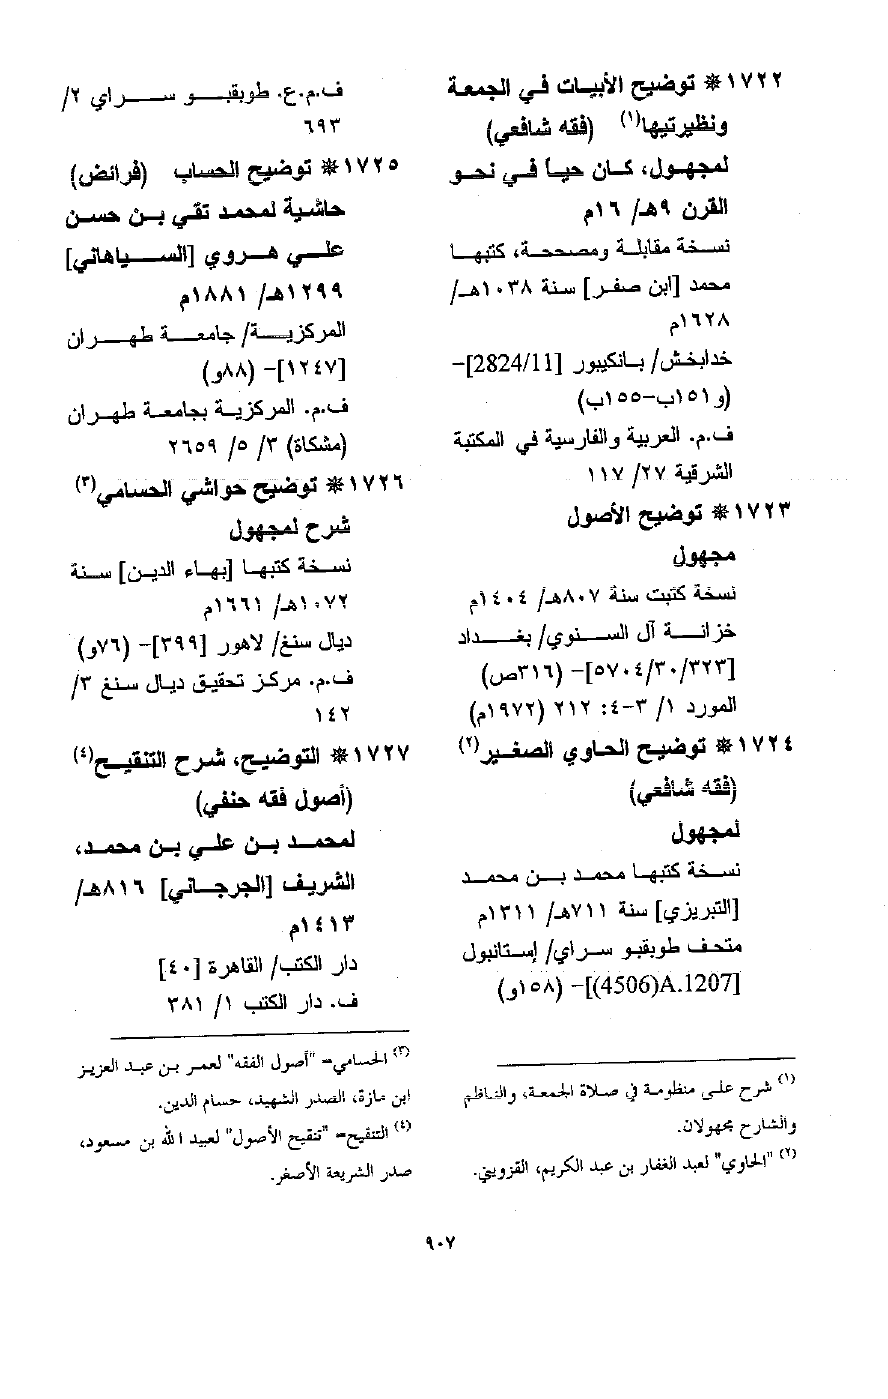 ١٧٢٢* توضيح الأبيات في الجمعة
ونظيرتيها(١) (فقه شافعي)
لمجهول، كان حياً في نحو
القرن ٩هـ/ ١٦م
نسخة مقابلة ومصححة، كتبها
محمد [ابن صفر] سنة ١٠٣٨هـ/
١٦٢٨م
خدابخش/ بانكيبور [2824/11]-
(و١٥١ب-١٥٥ب)
ف.م. العربية والفارسية في المكتبة
الشرقية ٢٧/ ١١٧
١٧٢٣* توضيح الأصول
مجهول
نسخة كتبت سنة ٨٠٧هـ/ ١٤٠٤م
خزانة آل السنوي/ بغداد
[٥٧٠٤/٣٠/٣٢٣]- (٣١٦ص)
المورد ١/ ٣-٤: ٢١٢ (١٩٧٢م)
١٧٢٤* توضيح الحاوي الصغير(٢)
(فقه شافعي)
لمجهول
نسخة كتبها محمد بن محمد
[التبريزي] سنة ٧١١هـ/ ١٣١١م
متحف طوبقبو سراي/ إستانبول
[4506)A.1207)]- (١٥٨و)
(١) شرح على منظومة في صلاة الجمعة، والناظم
والشارح مجهولان.
(٢) "الحاوي" لعبد الغفار بن عبد الكريم، القزويني.
ف.م.ع. طوبقبو سراي ٢/
٦٩٣
١٧٢٥* توضيح الحساب (فرائض)
حاشية لمحمد تقي بن حسن
علي هروي [السياهاني]
١٢٩٩هـ/ ١٨٨١م
المركزية/ جامعة طهران
[١٢٤٧]- (٨٨و)
ف.م. المركزية بجامعة طهران
(مشكاة) ٣/ ٥/ ٢٦٥٩
١٧٢٦* توضيح حواشي الحسامي(٣)
شرح لمجهول
نسخة كتبها [بهاء الدين] سنة
١٠٧٢هـ/ ١٦٦١م
ديال سنغ/ لاهور [٣٩٩]- (٧٦و)
ف.م. مركز تحقيق ديال سنغ ٣/
١٤٢
١٧٢٧* التوضيح، شرح التنقيح(٤)
(أصول فقه حنفي)
لمحمد بن علي بن محمد،
الشريف [الجرجاني] ٨١٦هـ/
١٤١٣م
دار الكتب/ القاهرة [٤٠]
ف. دار الكتب ١/ ٣٨١
(٣) الحسامي= "أصول الفقه" لعمر بن عبد العزيز
ابن مازة، الصدر الشهيد، حسام الدين.
(٤) التنقيح= "تنقيح الأصول" لعبيد الله بن مسعود،
صدر الشريعة الأصغر.
٩٠٧